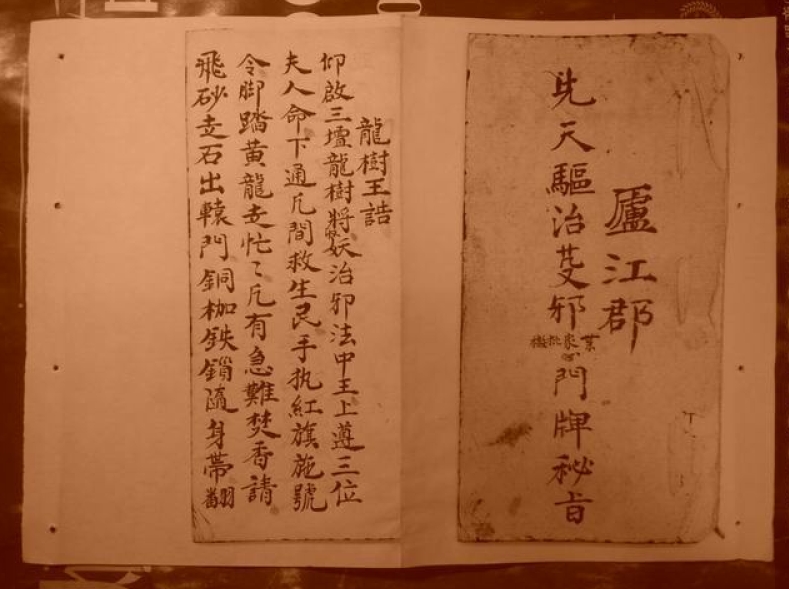 廬江郡
先天驅治邪門牌秘旨
龍樹王誥
仰啟三壇龍樹將妖治邪法中王上遵三位
夫人命下通凡間救生民手执紅旗施號
令脚踏黃龍走忙〻凡有急難焚香請
飛砂走石出轅門銅枷鉄鎖隨身帶翻